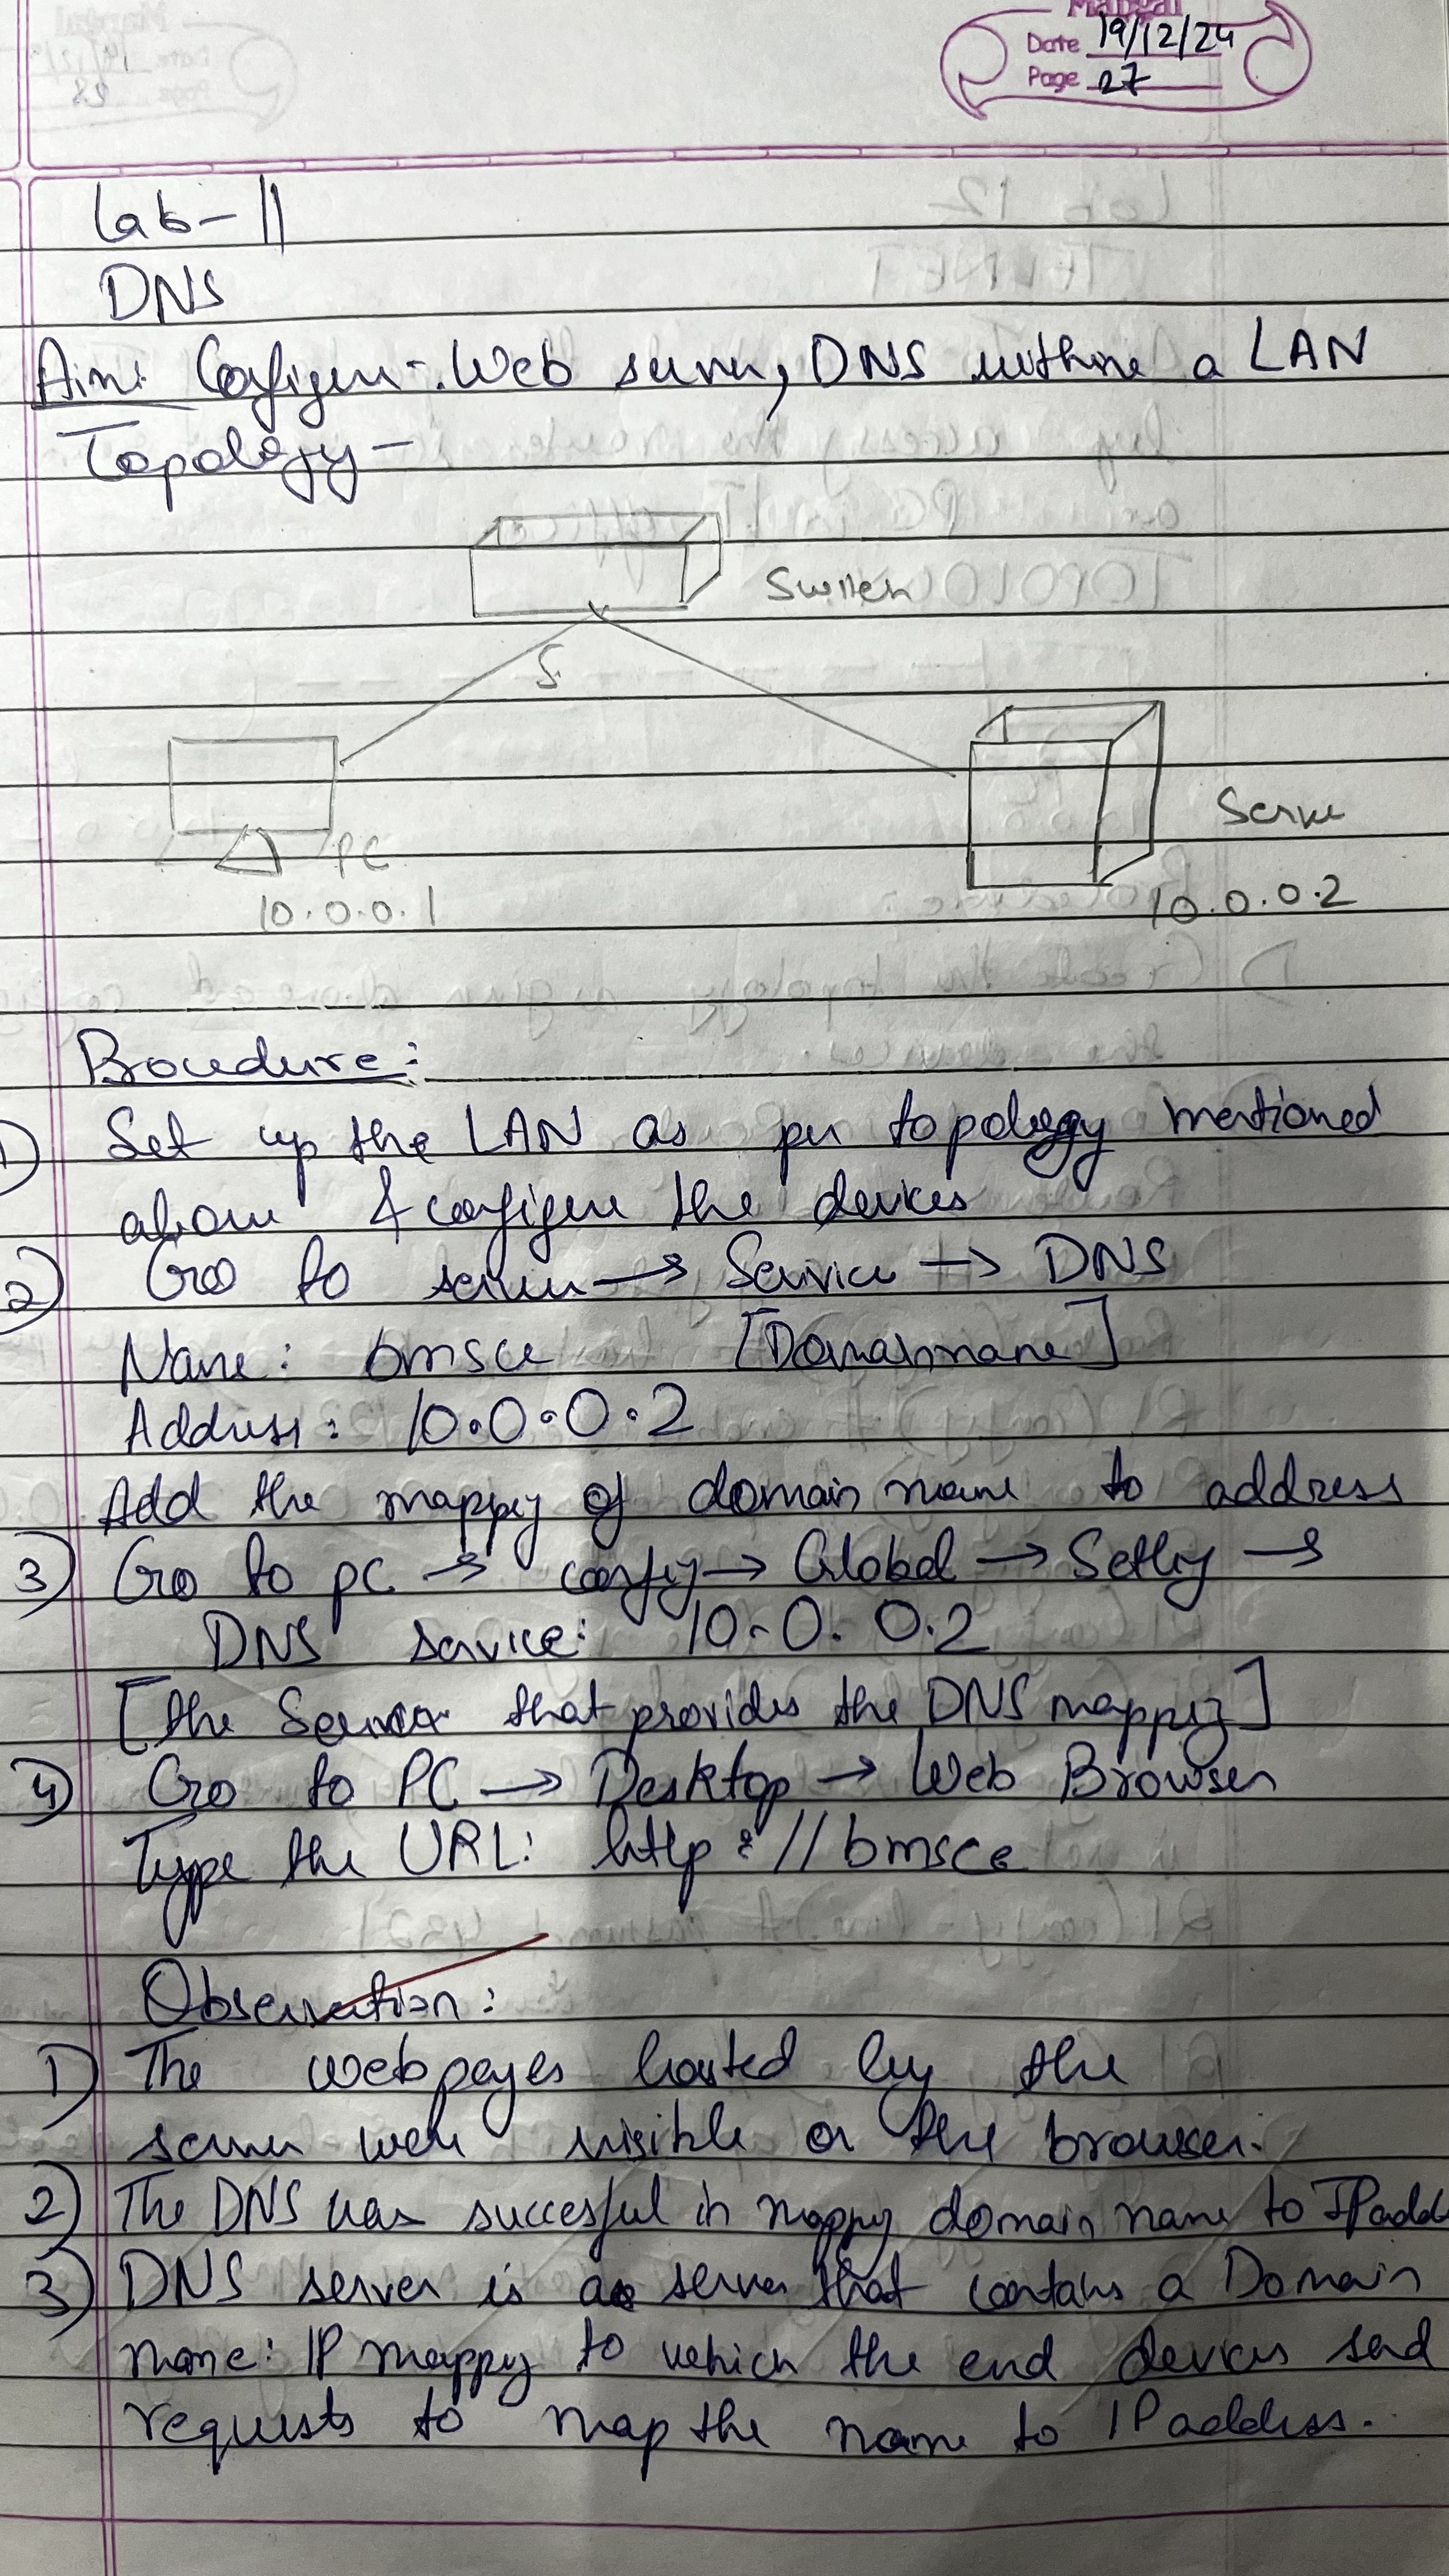 Mangal
Date 19/12/24
Page 27
Lab-11
DNS
Aim: Configure Web server, DNS within a LAN
Topology-
Switch
S
PC
10.0.0.1
Server
10.0.0.2
Procedure:
1) Set up the LAN as per topology mentioned
above & configure the devices
2) Go to server → Service → DNS
Name: bmsce [Domain name]
Address: 10.0.0.2
Add the mapping of domain name to address
3) Go to pc → config → Global → Setting →
DNS service: 10.0.0.2
[the Server that provides the DNS mapping]
4) Go to PC → Desktop → Web Browser
Type the URL: http://bmsce
Observation:
1) The webpages hosted by the
server were visible on the browser.
2) The DNS was succesful in mapping domain name to IP add
3) DNS server is a server that contains a Domain
name: IP mapping to which the end devices send
requests to map the name to IP address.